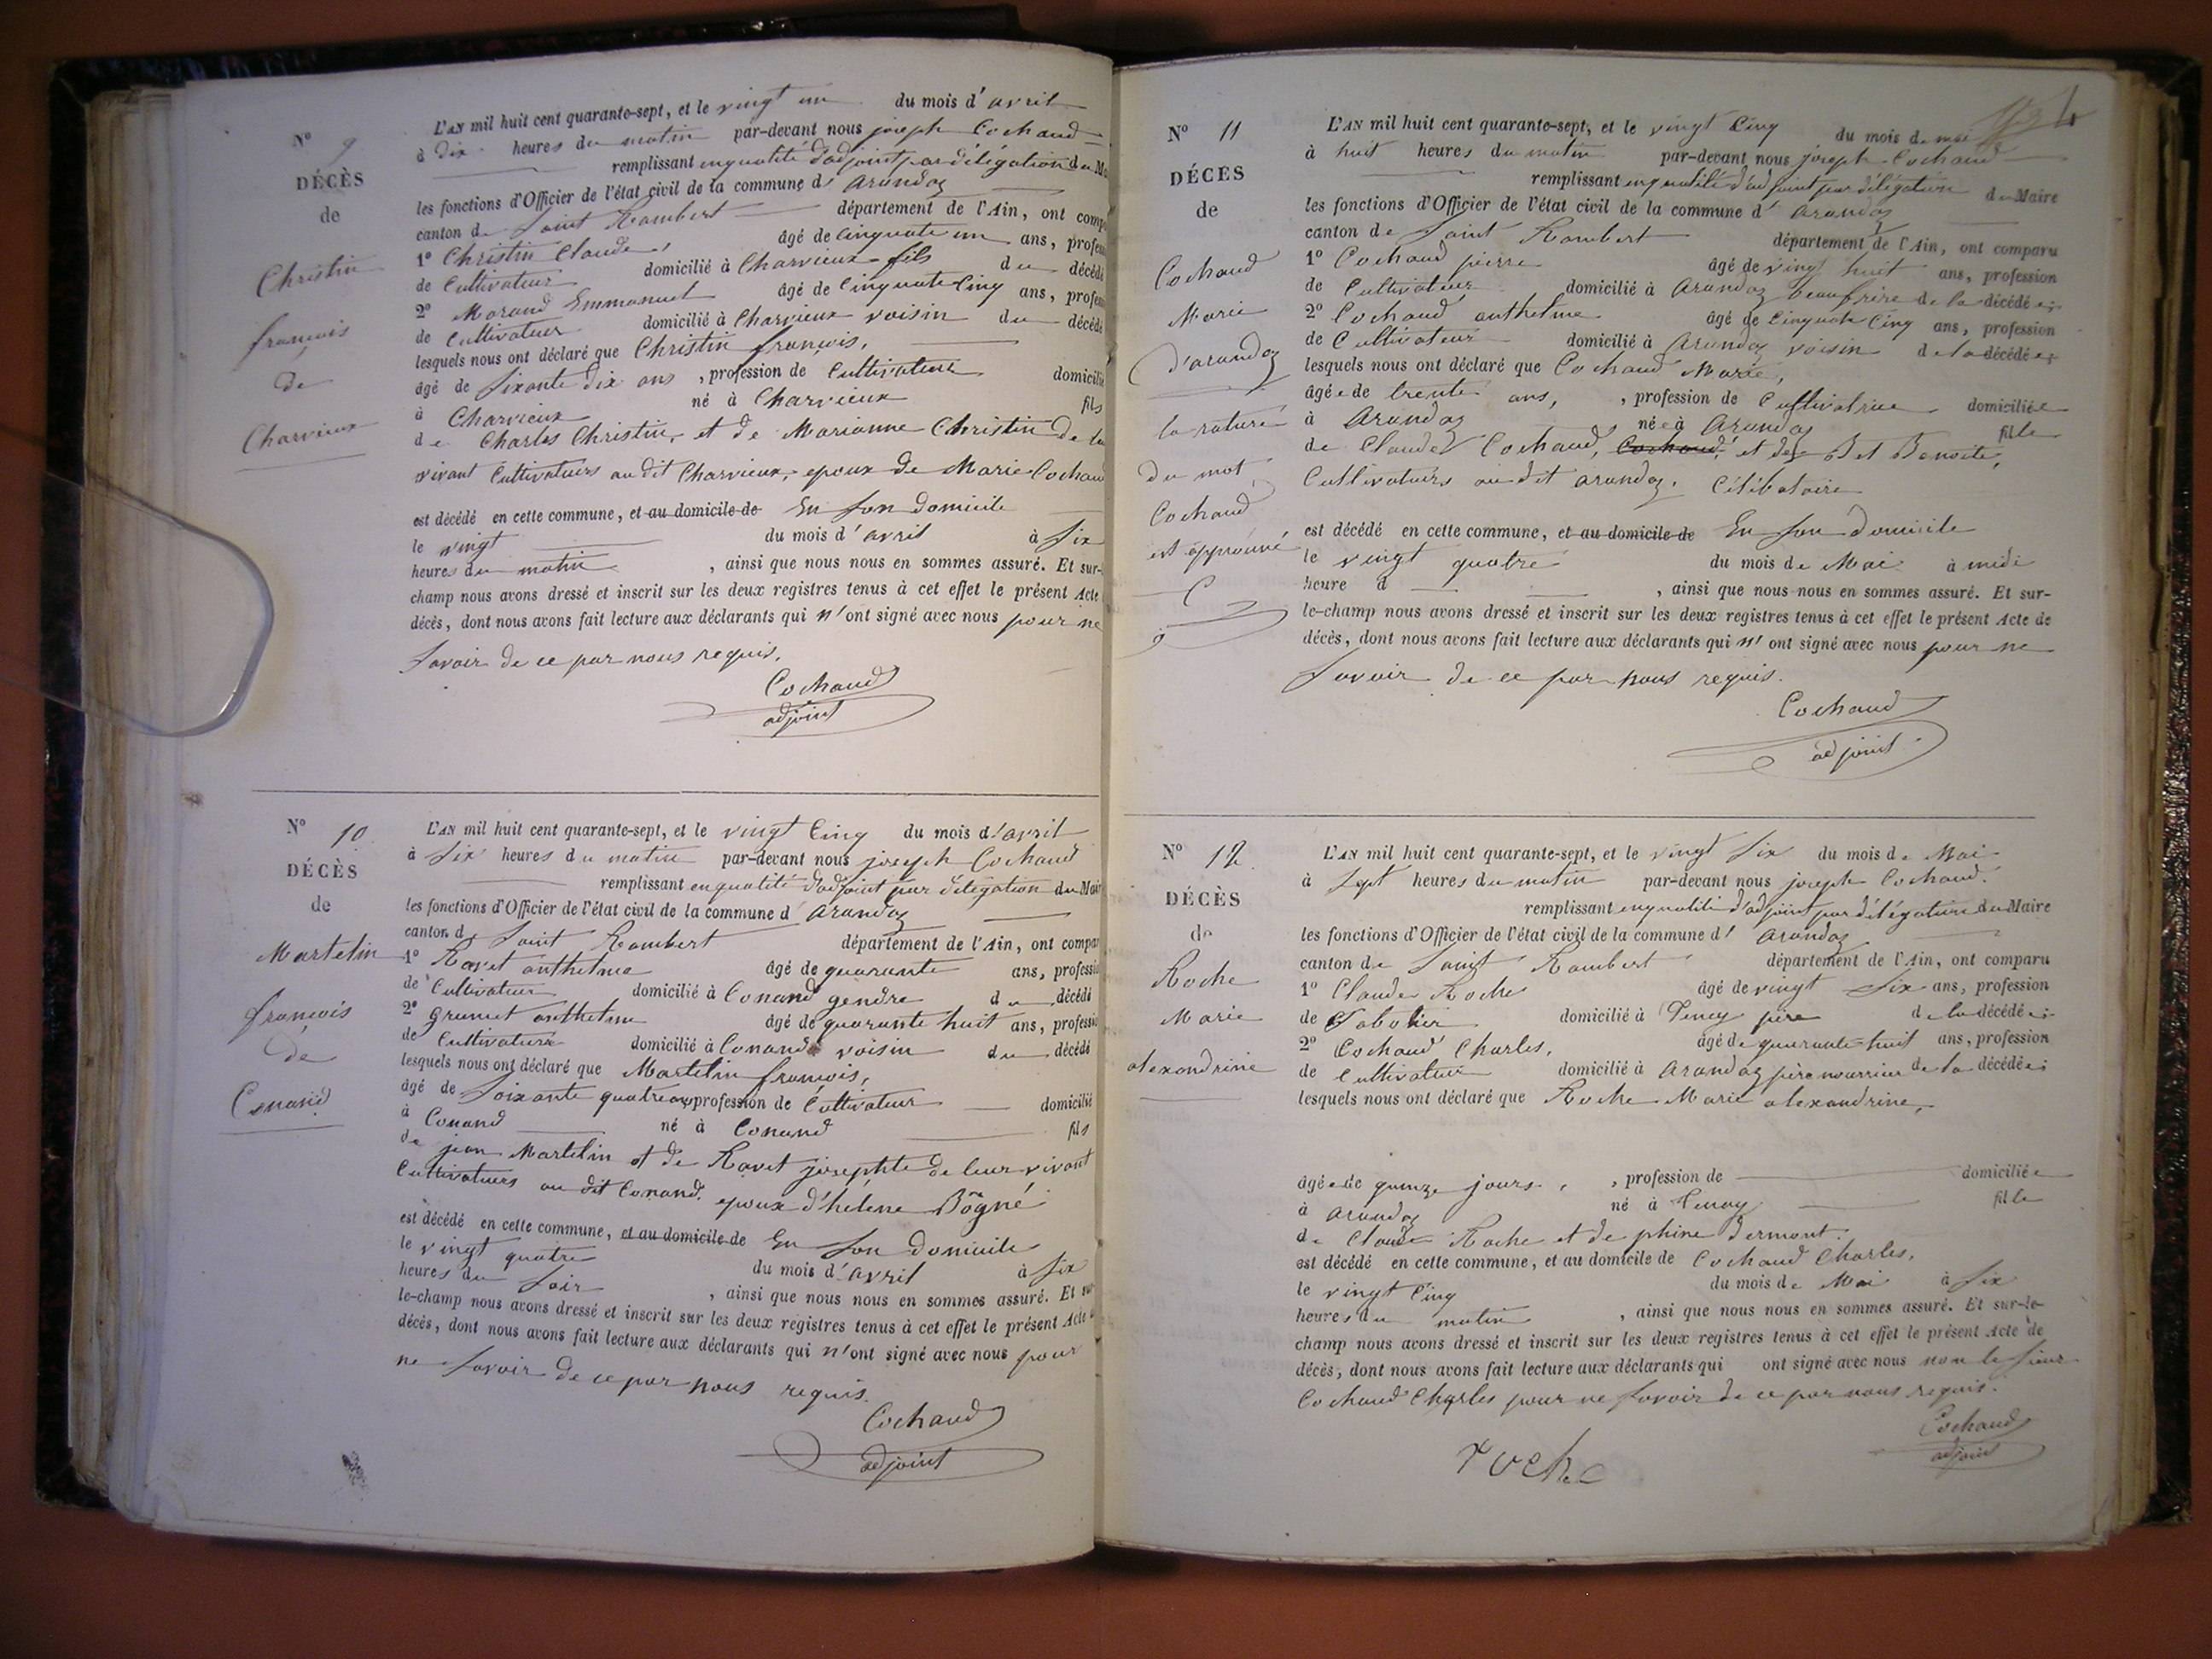 N° 9
DÉCÈS
de
Christin
françois
de
Charvieux
L'AN mil huit cent quarante-sept, et le vingt un du mois d'avril
à dix heures du matin par-devant nous joseph Cochaud
remplissant en qualité d'adjoint par délégation du
les fonctions d'Officier de l'état civil de la commune d' arandaz
canton de Saint Rambert département de l'Ain, ont
1° Christin Claude, âgé de Cinquate un ans,
de Cultivateur domicilié à Charvieux fils du décédé
2° Morand Emmanuel âgé de Cinquate Cinq ans,
de Cultivateur domicilié à Charvieux voisin du décédé
lesquels nous ont déclaré que Christin françois,
âgé de soixante dix ans, profession de Cultivateur domicilié
à Charvieux né à Charvieux fils
de Charles Christin, et de Marianne Christin de
vivant Cultivateurs au dit Charvieux, epoux de Marie Cochaud
est décédé en cette commune, et au domicile de En son domicile
le vingt du mois d'avril à six
heures du matin, ainsi que nous nous en sommes assuré. Et sur-
champ nous avons dressé et inscrit sur les deux registres tenus à cet effet le présent Acte
décès, dont nous avons fait lecture aux déclarants qui n'ont signé avec nous pour ne
savoir de ce par nous requis.
Cochaud
adjoint
N° 10
DÉCÈS
de
Martelin
françois
de
Conand
L'AN mil huit cent quarante-sept, et le vingt Cinq du mois d'avril
à six heures du matin par-devant nous joseph Cochaud
remplissant en qualité d'adjoint par délégation du
les fonctions d'Officier de l'état civil de la commune d' arandaz
canton d Saint Rambert département de l'Ain, ont
1° Ravet anthelme âgé de quarante ans,
de Cultivateur domicilié à Conand gendre du décédé
2° grumet anthelme âgé de quarante huit ans,
de Cultivateur domicilié à Conand voisin du décédé
lesquels nous ont déclaré que Martelin françois,
âgé de soixante quatre ans, profession de Cultivateur domicilié
à Conand né à Conand fils
de jean Martelin et de Ravet josephte de leur vivant
Cultivateurs au dit Conand. epoux d'helene Bogné
est décédé en cette commune, et au domicile de En son domicile
le vingt quatre du mois d'avril à six
heures du soir, ainsi que nous nous en sommes assuré. Et
le-champ nous avons dressé et inscrit sur les deux registres tenus à cet effet le présent Acte
décès, dont nous avons fait lecture aux déclarants qui n'ont signé avec nous pour
ne savoir de ce par nous requis.
Cochaud
adjoint
N° 11
DÉCÈS
de
Cochaud
Marie
d'arandaz
la rature
du mot
Cochaud
est approuvé
C
L'AN mil huit cent quarante-sept, et le vingt Cinq du mois de mai
à huit heures du matin par-devant nous joseph Cochaud
remplissant en qualité d'adjoint par délégation du Maire
les fonctions d'Officier de l'état civil de la commune d' arandaz
canton de Saint Rambert département de l'Ain, ont comparu
1° Cochaud pierre âgé de vingt huit ans, profession
de Cultivateur domicilié à arandaz beaufrère de la décédée
2° Cochaud anthelme âgé de Cinquate Cinq ans, profession
de Cultivateur domicilié à arandaz voisin de la décédée
lesquels nous ont déclaré que Cochaud Marie,
âgée de trente ans, profession de Cultivatrice domiciliée
à arandaz née à arandaz fille
de Claude Cochaud, Cochaud, et de Bet Benoite,
Cultivateurs au dit arandaz. Célibataire
est décédé en cette commune, et au domicile de En son domicile
le vingt quatre du mois de Mai à midi
heure d, ainsi que nous nous en sommes assuré. Et sur-
le-champ nous avons dressé et inscrit sur les deux registres tenus à cet effet le présent Acte de
décès, dont nous avons fait lecture aux déclarants qui n'ont signé avec nous pour ne
savoir de ce par nous requis.
Cochaud
adjoint
N° 12
DÉCÈS
de
Roche
Marie
alexandrine
L'AN mil huit cent quarante-sept, et le vingt six du mois de Mai
à sept heures du matin par-devant nous joseph Cochaud.
remplissant en qualité d'adjoint par délégation du Maire
les fonctions d'Officier de l'état civil de la commune d' arandaz
canton de Saint Rambert département de l'Ain, ont comparu
1° Claude Roche âgé de vingt six ans, profession
de domicilié à Tenay père de la décédée
2° Cochaud Charles, âgé de quarante huit ans, profession
de Cultivateur domicilié à arandaz père nourricier de la décédée
lesquels nous ont déclaré que Roche Marie alexandrine,
âgée de quinze jours, profession de domiciliée
à arandaz né à Tenay fille
de Claude Roche et de phine Dermont.
est décédé en cette commune, et au domicile de Cochaud Charles.
le vingt Cinq du mois de Mai à six
heures du matin, ainsi que nous nous en sommes assuré. Et sur-le-
champ nous avons dressé et inscrit sur les deux registres tenus à cet effet le présent Acte de
décès, dont nous avons fait lecture aux déclarants qui ont signé avec nous non le sieur
Cochaud Charles pour ne savoir de ce par nous requis.
Cochaud
adjoint
roche